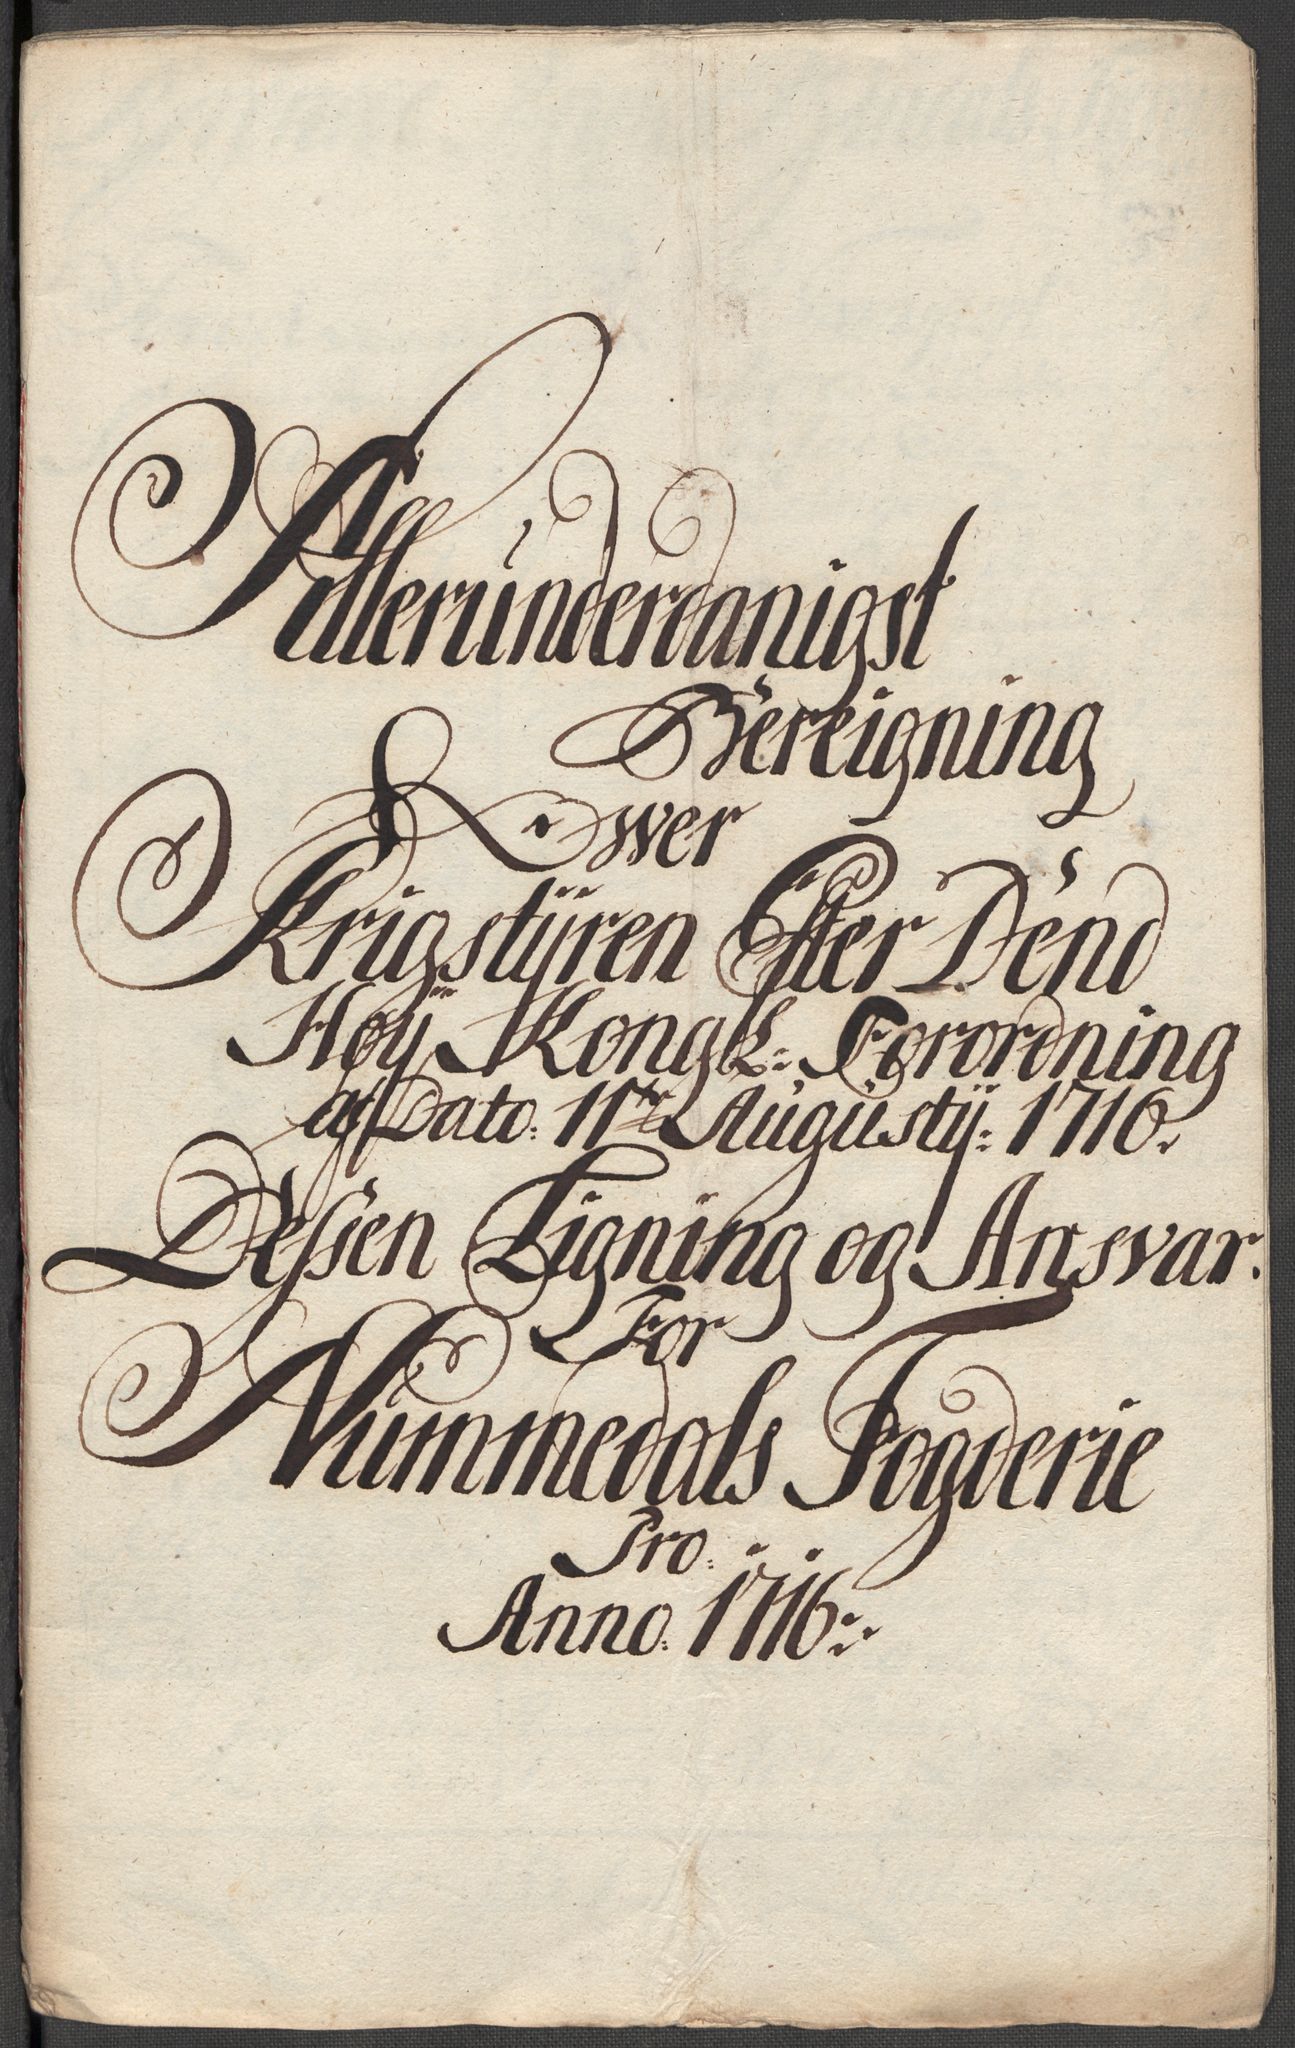 Alleründerdanigst
Bereigning
Over
Krigstÿren Efter Dend
Høÿ Kongl: Forordning
af Dato: 11te Augüstÿ: 1716.
Dessen Ligning og Ansvar.
For
Nümmedals Fogderie
Pro.
Anno. 1716: